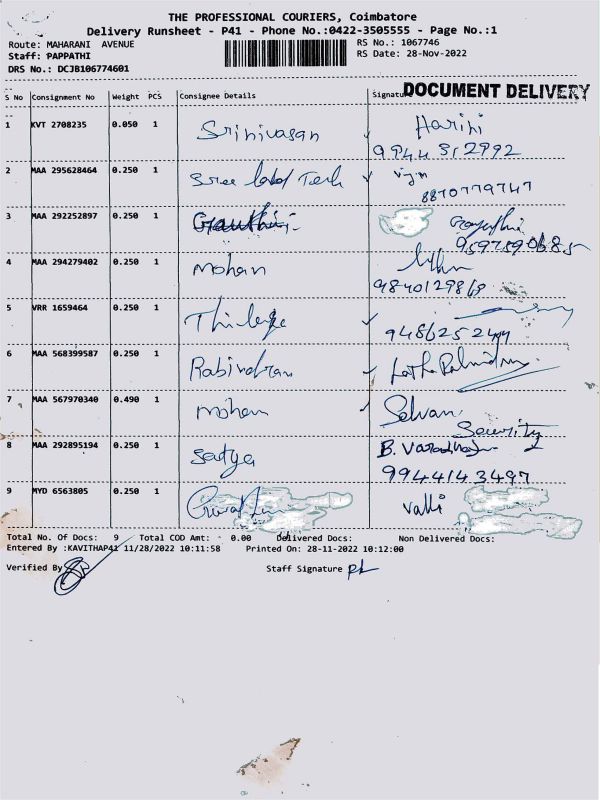 THE PROFESSIONAL COURIERS, Coimbatore
Delivery Runsheet - P41 - Phone No.:0422-3505555 - Page No.:1
Route: MAHARANI AVENUE
RS No.: 1067746
Staff: PAPPATHI
RS Date: 28-Nov-2022
DRS No.: DCJB106774601
DOCUMENT DELIVERY
S No Consignment No Weight PCS Consignee Details Signature
1 KVT 2708235 0.050 1 Srinivasan Harini
9944312992
2 MAA 295628464 0.250 1 Sree Tech
8870779747
3 MAA 292252897 0.250 1
9597590685
4 MAA 294279402 0.250 1 mohan
9840129869
5 VRR 1659464 0.250 1
6 MAA 568399587 0.250 1 Rabindran
7 MAA 567970340 0.490 1 mohan Selvan
Security
8 MAA 292895194 0.250 1 Satya B.
9944143497
9 MYD 6563805 0.250 1 Valli
Total No. Of Docs: 9 Total COD Amt: 0.00 Delivered Docs: Non Delivered Docs:
Entered By :KAVITHAP41 11/28/2022 10:11:58 Printed On: 28-11-2022 10:12:00
Verified By
Staff Signature